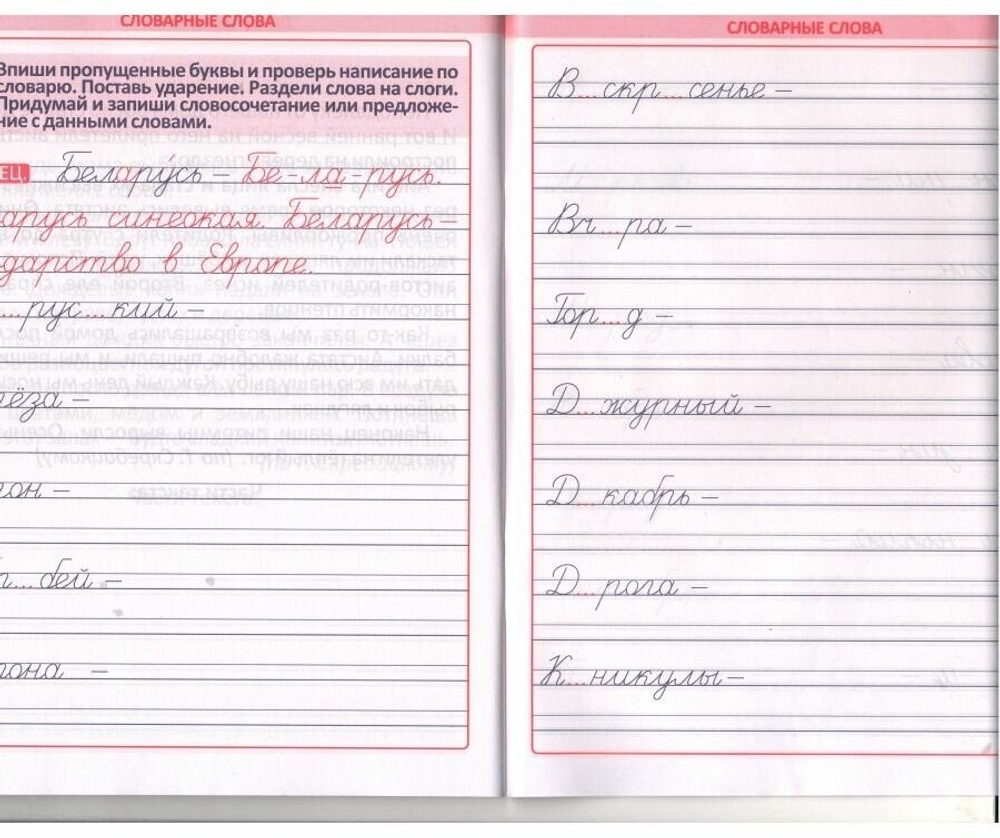 СЛОВАРНЫЕ СЛОВА
Впиши пропущенные буквы и проверь написание по
словарю. Поставь ударение. Раздели слова на слоги.
Придумай и запиши словосочетание или предложе-
ние с данными словами.
ЕЦ. Белару́сь – Бе-ла-русь.
арусь синеокая. Беларусь –
дарство в Европе.
...рус...кий –
ёза –
он –
...бей –
она –
СЛОВАРНЫЕ СЛОВА
В...скр...сенье –
Вч...ра –
Гор...д –
Д...журный –
Д...кабрь –
Д...рога –
К...никулы –